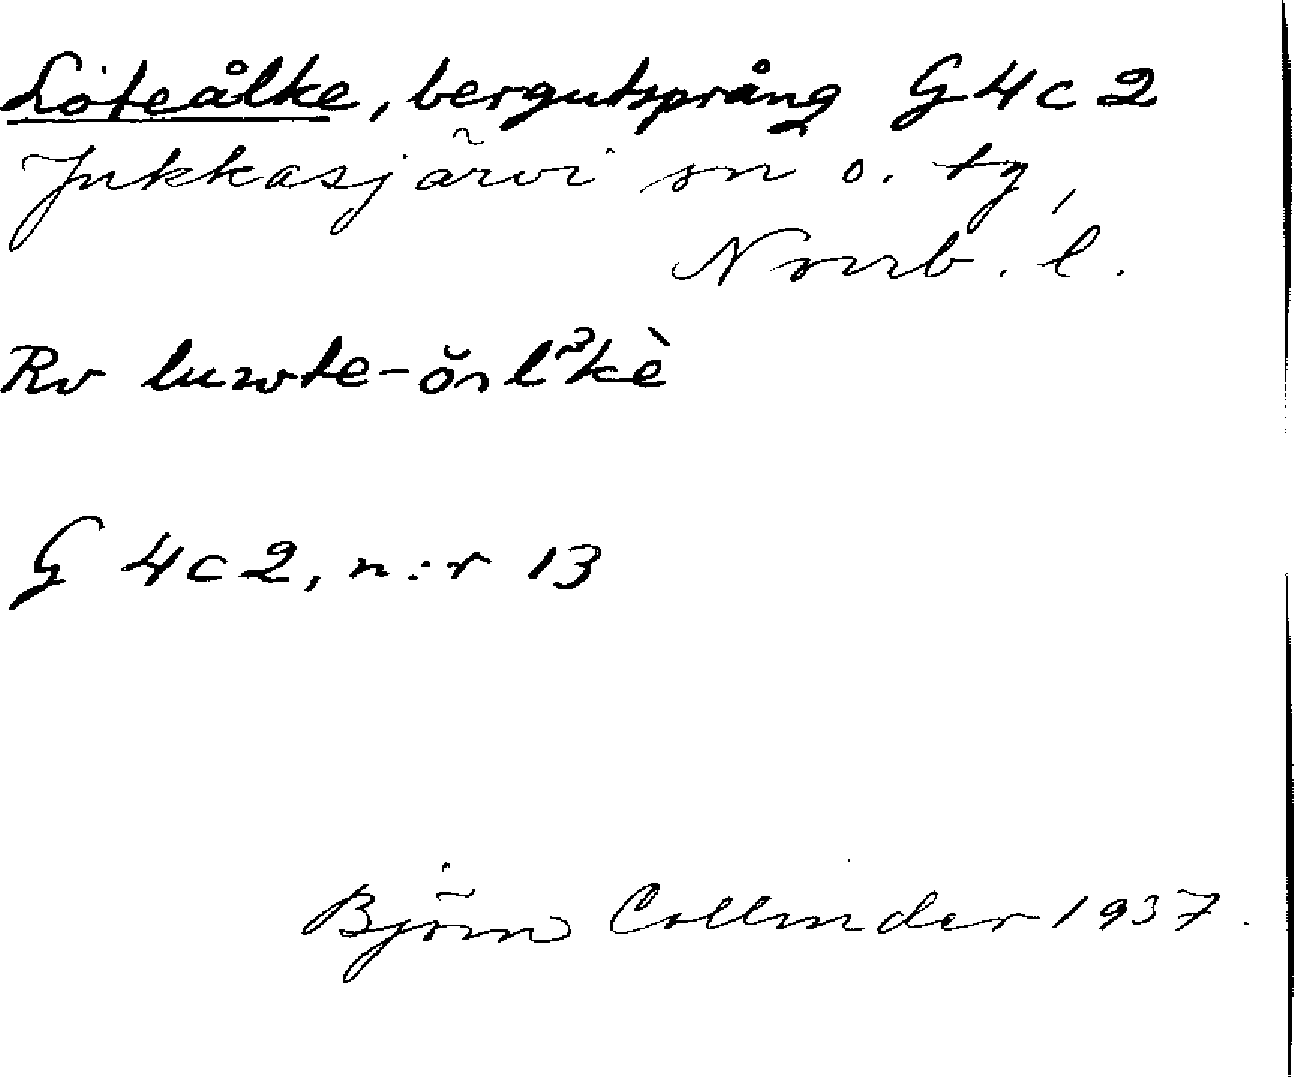 Löteålke, bergutsprång G4c2
Jukkasjärvi sn o. tg,
Norrb. l.
Rv
G 4c2, n:r 13
Björn Collinder 1937.